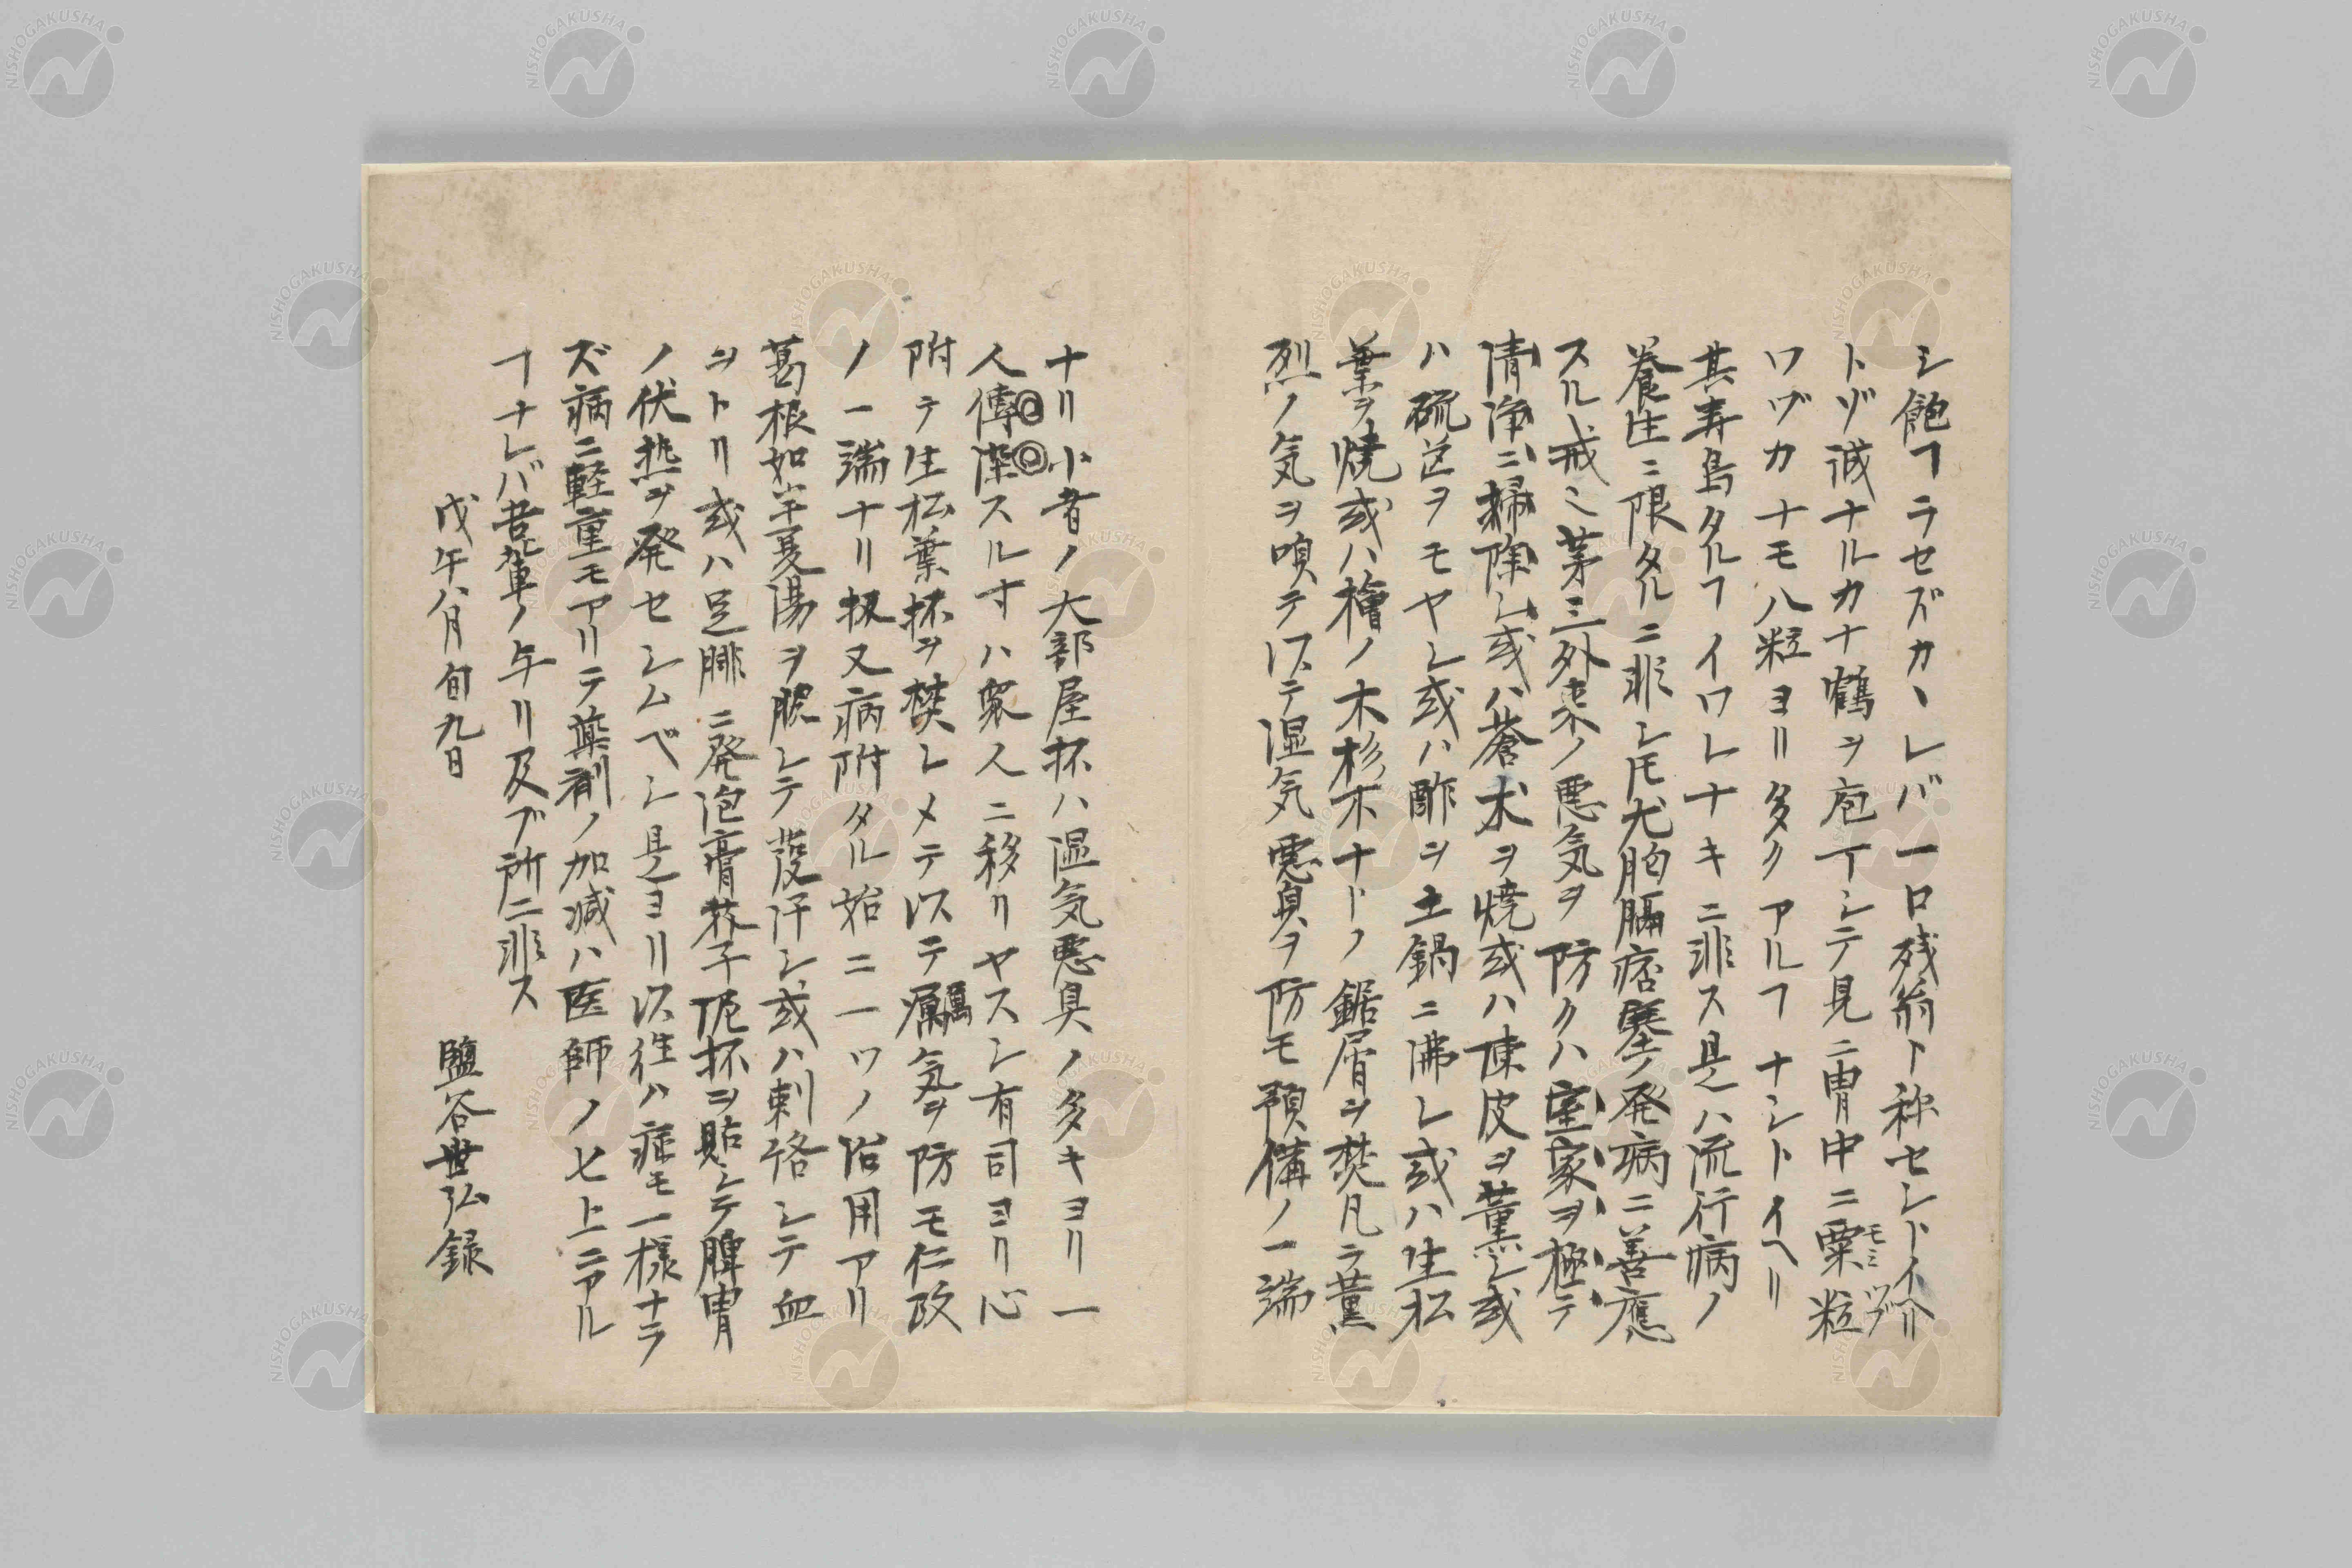 シ飽フラセズカヽレバ一口残翁ト称セントイヘリ
トゾ誠ナルカナ鶴ヲ庖丁シテ見ニ胃中ニ粟粒
モミ ツブ
ワヅカナモ八粒ヨリ多クアルフナシトイヘリ
其寿島タルフイワレナキニ非ス是ハ流行病ノ
養生ニ限タルニ非シ𪜈尤胸膈痞塞ノ発病ニ善應
スル戒ミ茅三外来ノ悪気ヲ防クハ室家ヲ極テ
清浄ニ掃除シ或ハ蒼朮ヲ焼或ハ陳皮ヲ薫シ或
ハ硫黄ヲモヤシ或ハ酢ヲ土鍋ニ沸シ或ハ生松
葉ヲ焼或ハ檜ノ木杉木ナドノ鋸屑ヲ焚凡ラ薫
烈ノ気ヲ嗅テ以テ湿気悪臭ヲ防モ預備ノ一端
ナリ小者ノ大部屋抔ハ湿気悪臭ノ多キヨリ一
人傳染スル寸ハ衆人ニ移リヤスシ有司ヨリ心
◎◎
附テ生松葉抔ヲ焚シメテ以テ癘気ヲ防モ仁政
ノ一端ナリ扨又病附タル始ニ一ツノ治用アリ
葛根如半夏湯ヲ服シテ発汗シ或ハ刺絡シテ血
ヲトリ或ハ足腓ニ発泡膏芥子泥抔ヲ貼シテ脾胃
ノ伏熱ヲ発セシムベシ是ヨリ以往ハ症モ一様ナラ
ズ病ニ軽重モアリテ薬剤ノ加減ハ医師ノ七上ニアル
フナレバ吾輩ノ与リ及ブ所ニ非ス
戊午八月旬九日
鹽谷世弘録